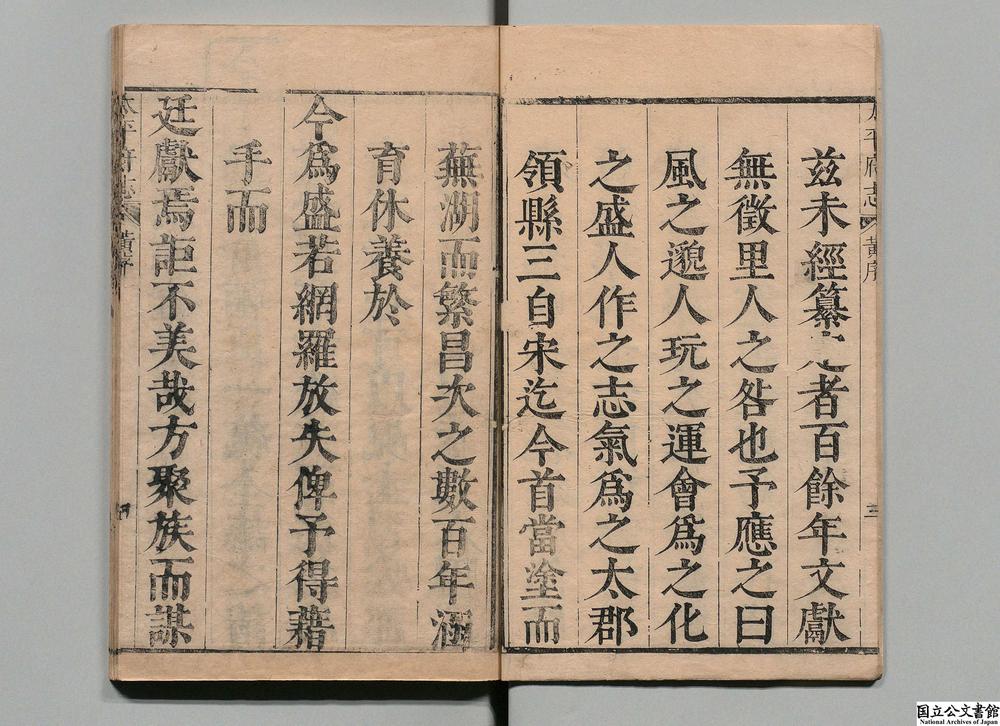 太平府志 黃序 三
茲未經纂之者百餘年文獻
無徵里人之咎也予應之曰
風之邈人玩之運會爲之化
之盛人作之志氣爲之太郡
領縣三自宋迄今首當塗而
蕪湖而繁昌次之數百年涵
育休養於
今爲盛若網羅放失俾予得藉
手而
廷獻焉詎不美哉方聚族而謀
太平府志 黃序
国立公文書館
National Archives of Japan